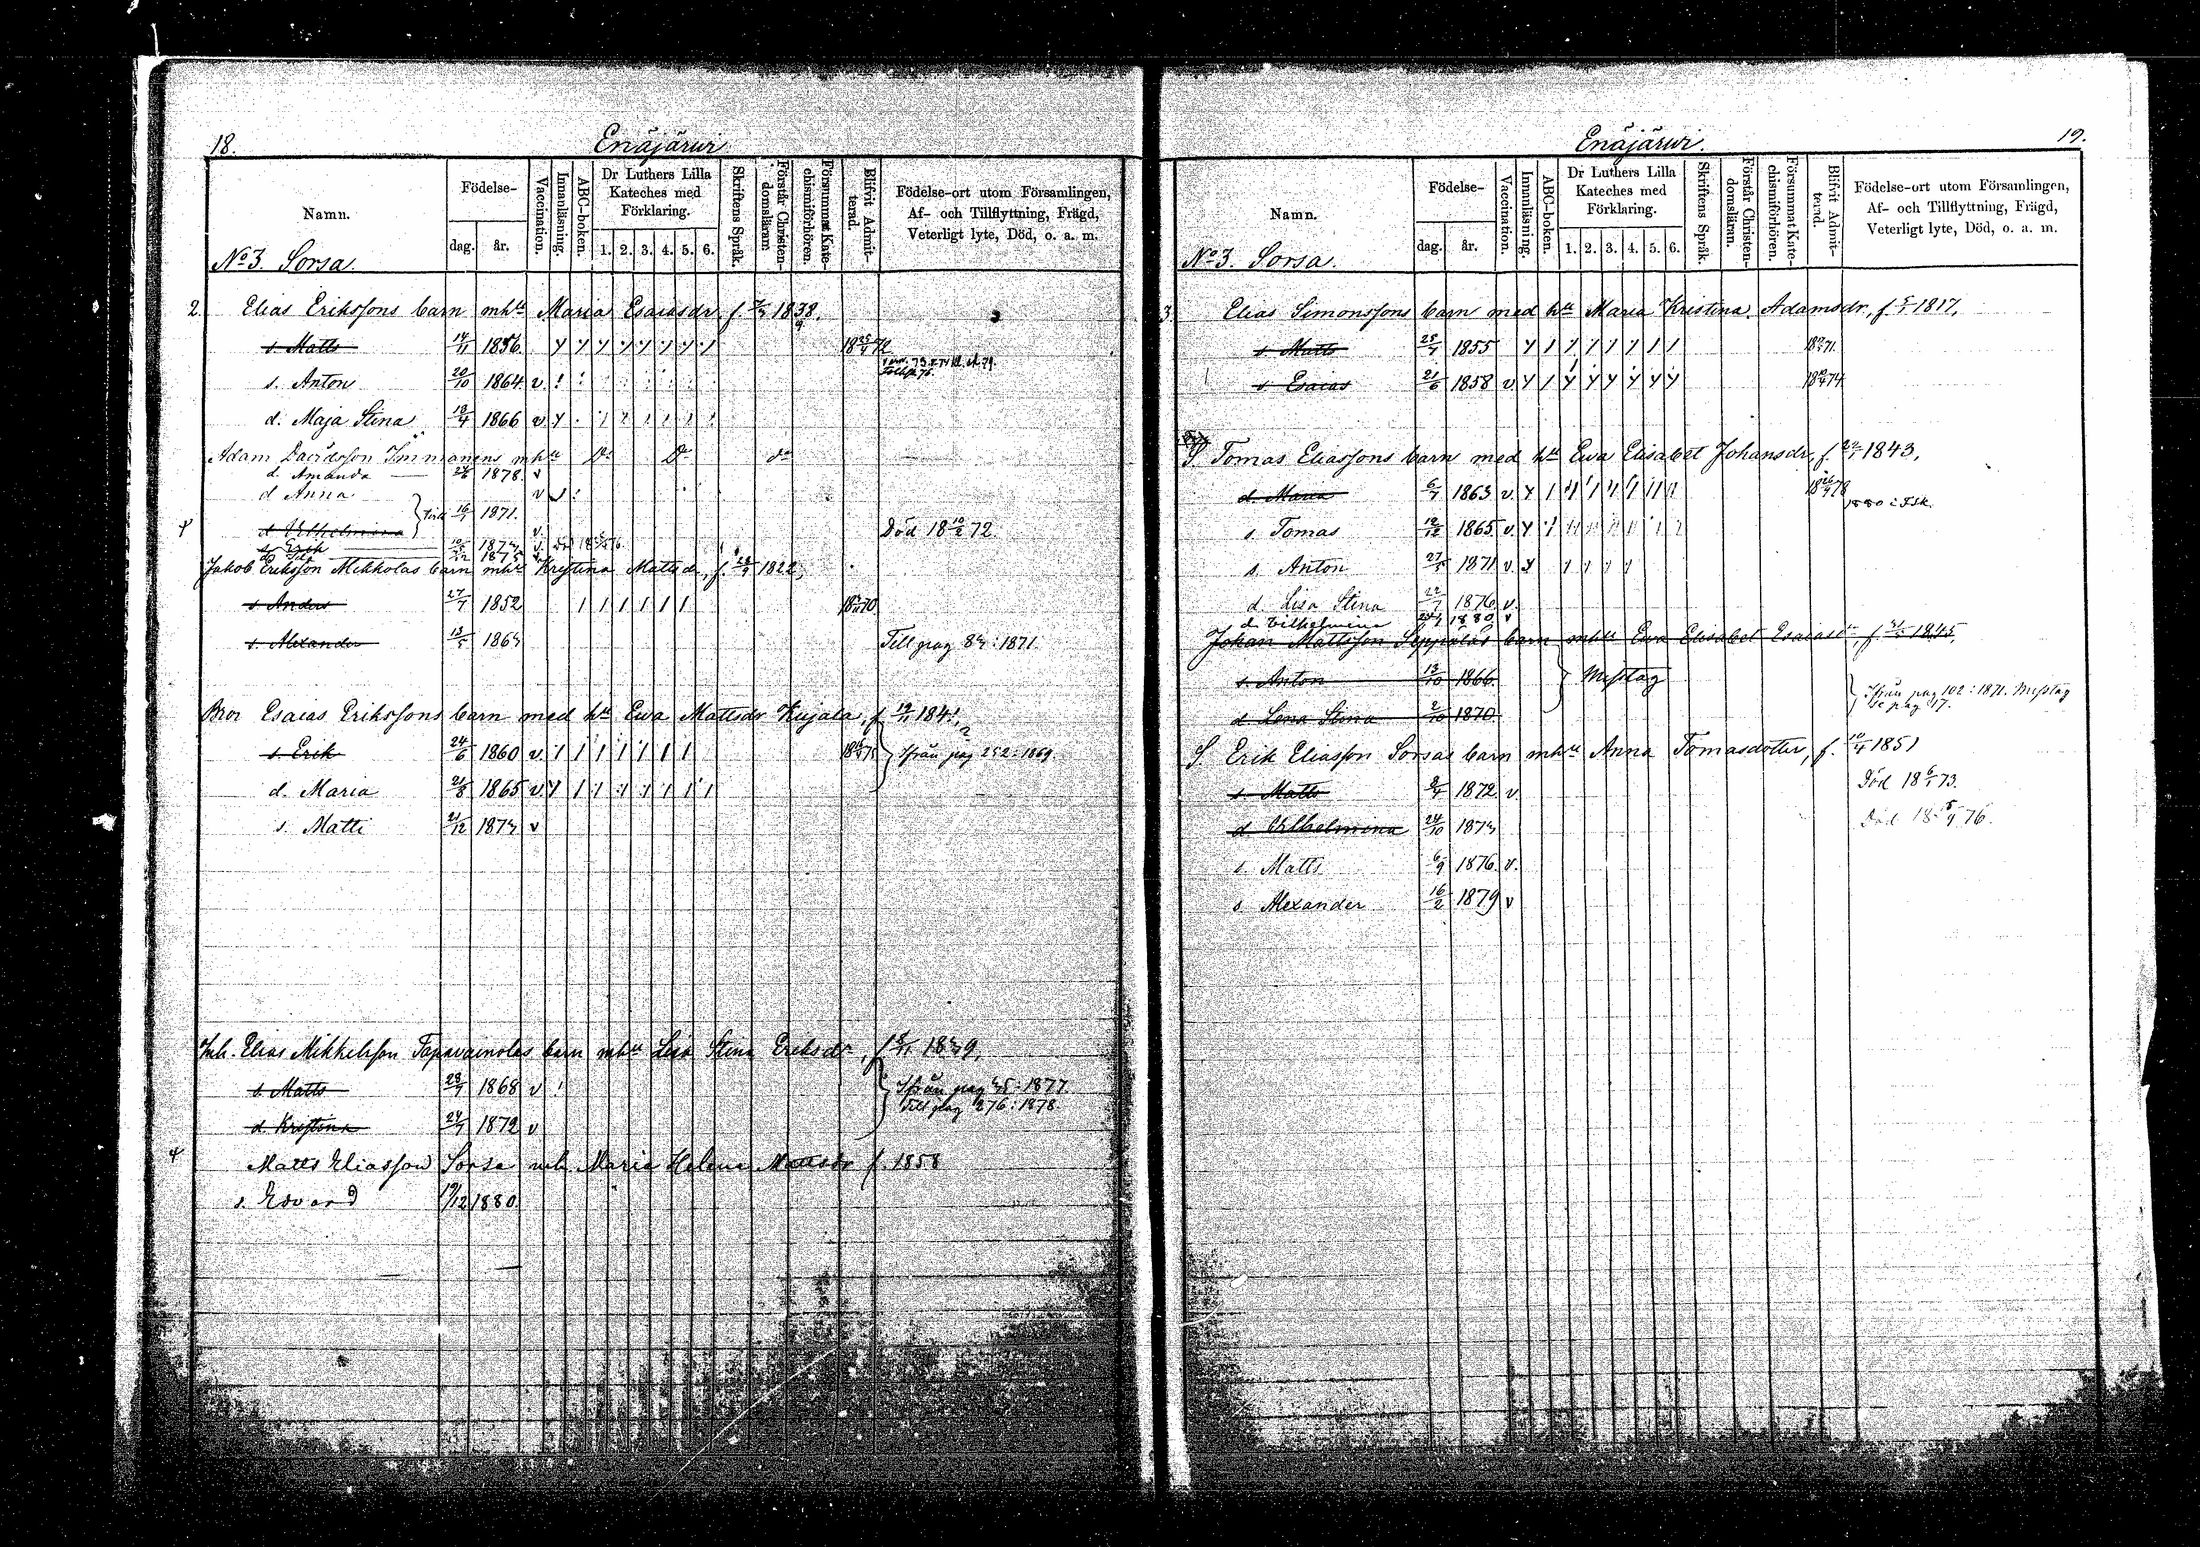 18.
Enäjärwi
Namn.
Födelse-
dag.
år.
Vaccination.
Innanläsning.
ABC-boken.
Dr Luthers Lilla Kateches med Förklaring.
1. 2. 3. 4. 5. 6.
Skriftens Språk.
Förstår Christendomsläran.
Försummat Katechismiförhören.
Blifvit Admitterad.
Födelse-ort utom Församlingen,
Af- och Tillflyttning, Frägd,
Veterligt lyte, Död, o. a. m.
No 3. Sorsa.
2. Elias Erikssons barn mhu Maria Esaiasdr f. 1838.
s. Matts 14/11 1856.
s. Anton 20/10 1864. v
d. Maja Stina 18/4 1866 v
Adam Davidsson Immonens mhu Do Do do
d. Amanda 24/6 1878. v
d Anna
d Wilhelmina 16/7 1871. v. Död 18 10/2 72.
s. Erik
Jakob Eriksson Mikkolas barn mhu Kristina Mattsdr, f. 28/9 1822,
s. Anders 27/7 1852
s. Alexander 13/5 1864 Till pag 84: 1871.
Bror Esaias Erikssons barn med hu Ewa Mattsdr Kujala, f 19/11 1841,
s. Erik 24/6 1860 v. Ifrån pag 252: 1869.
d. Maria 21/8 1865 v.
s. Matti 21/12 1874 v
Inh. Elias Mikkelsson Tapavainolas barn mhu Lisa Stina Eriksdr, f 1849,
s. Matts 28/7 1868 v Ifrån pag 45: 1877.
Till pag 276: 1878
d. Kristina 24/7 1872 v
Matts Eliasson Sorsa mh. Maria Helena Mattsdr f. 1858
s. Edvard 19/12 1880.
19.
Enäjärwi.
Namn.
Födelse-
dag.
år.
Vaccination.
Innanläsning.
ABC-boken.
Dr Luthers Lilla Kateches med Förklaring.
1. 2. 3. 4. 5. 6.
Skriftens Språk.
Förstår Christendomsläran.
Försummat Katechismiförhören.
Blifvit Admitterad.
Födelse-ort utom Församlingen,
Af- och Tillflyttning, Frägd,
Veterligt lyte, Död, o. a. m.
No 3. Sorsa.
3. Elias Simonssons barn med hu Maria Kristina Adamsdr, f. 1817,
s. Matts 25/7 1855
s. Esaias 21/6 1858 v
S. Tomas Eliassons barn med hu Ewa Elisabet Johansdr, f. 1843,
d. Maria 6/7 1863 v.
s. Tomas 12/12 1865 v.
s. Anton 27/5 1871 v.
d. Lisa Stina 22/7 1876 v.
d. Wilhelmina 1880. v
Johan Mattsson Seppäläs barn mhu Ewa Elisabet Esaiasdr, f. 1845,
s. Anton 13/10 1866. Misstag
d. Lena Stina 2/10 1870 Ifrån pag 102: 1871. Misstag
se pag 17.
S. Erik Eliasson Sorsas barn mhu Anna Tomasdotter, f. 10/4 1851
s. Matts 1872 v. Död 18 6/1 73.
d. Wilhelmina 24/10 1874 Död 18 5/4 76.
s. Matts 6/9 1876 v.
s. Alexander 16/2 1879 v